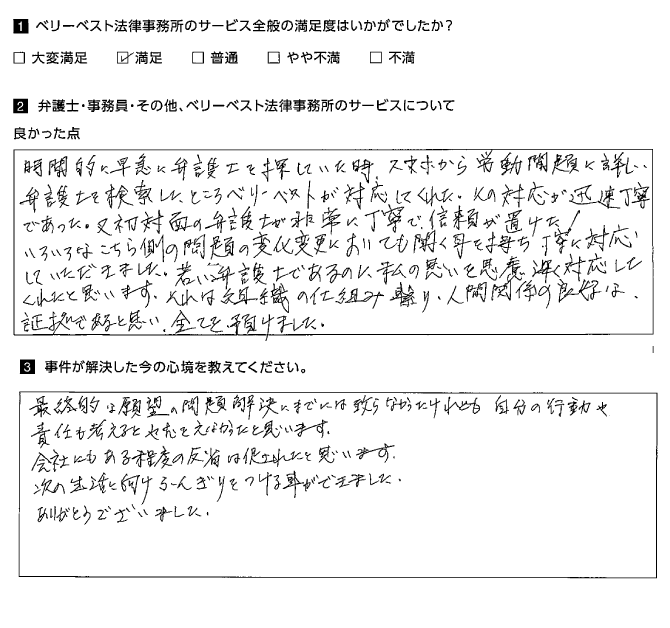 1 ベリーベスト法律事務所のサービス全般の満足度はいかがでしたか?
□ 大変満足 ☑ 満足 □ 普通 □ やや不満 □ 不満
2 弁護士・事務員・その他、ベリーベスト法律事務所のサービスについて
良かった点
時間的に早急に弁護士を探していた時、スマホから労働問題に詳しい
弁護士を検索したところベリーベストが対応してくれた。その対応が迅速丁寧
であった。又初対面の弁護士が非常に丁寧で、信頼が置けた!
いろいろなこちら側の問題の変化変更においても聞く耳を持ち丁寧に対応
していただきました。若い弁護士であるのに私の思いを思慮深く対応した
くれたと思います。それは組織の仕組み繋り、人間関係の良好は、
証拠であると思い、全てを預けました。
3 事件が解決した今の心境を教えてください。
最終的な願望の問題解決にまでには致らなかったけれども 自分の行動や
責任も考えると せむえなかったと思います。
会社にもある程度の反省は促されたと思います。
次の生活に向けるんぎりをつける事ができました。
ありがとうございました。